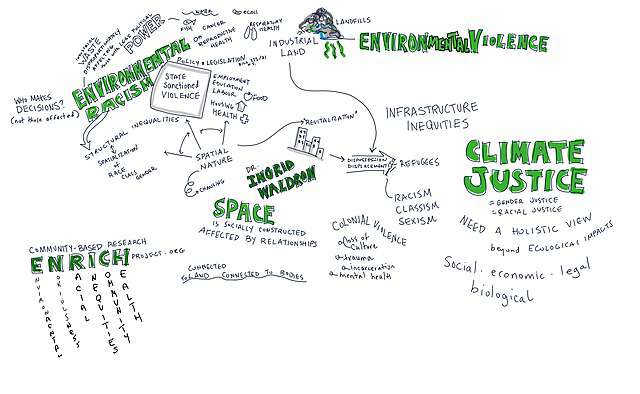 E COLI
FISH
CANCER
OR
REPRODUCTIVE
HEALTH
RESPIRATORY
HEALTH
WASTE
DISPROPORTIONATELY
AFFECTED
WITH LESS POLITICAL
POWER
LANDFILLS
INDUSTRIAL
LAND
ENVIRONMENTAL VIOLENCE
ENVIRONMENTAL
RACISM
POLICY + LEGISLATION
STATE
SANCTIONED
VIOLENCE
EMPLOYMENT
EDUCATION
LABOUR
FOOD
HOUSING
HEALTH
WHO MAKES
DECISIONS?
(not those affected)
STRUCTURAL INEQUALITIES
SPATIALIZATION
OF
RACE
CLASS
GENDER
SPATIAL
NATURE
CHANGING
"REVITALIZATION"
DISPOSSESSION
DISPLACEMENT
REFUGEES
RACISM
CLASSISM
SEXISM
INFRASTRUCTURE
INEQUITIES
DR.
INGRID
WALDRON
SPACE
IS SOCIALLY CONSTRUCTED
AFFECTED BY RELATIONSHIPS
COLONIAL VIOLENCE
loss of
culture
trauma
incarceration
mental health
CLIMATE
JUSTICE
= GENDER JUSTICE
= RACIAL JUSTICE
NEED A HOLISTIC VIEW
beyond ECOLOGICAL IMPACTS
Social · economic · legal
biological
COMMUNITY-BASED RESEARCH
ENRICH PROJECT.ORG
ENVIRONMENTAL
NOXIOUSNESS
RACIAL
INEQUITIES
COMMUNITY
HEALTH
CONNECTED
TO LAND CONNECTED TO BODIES